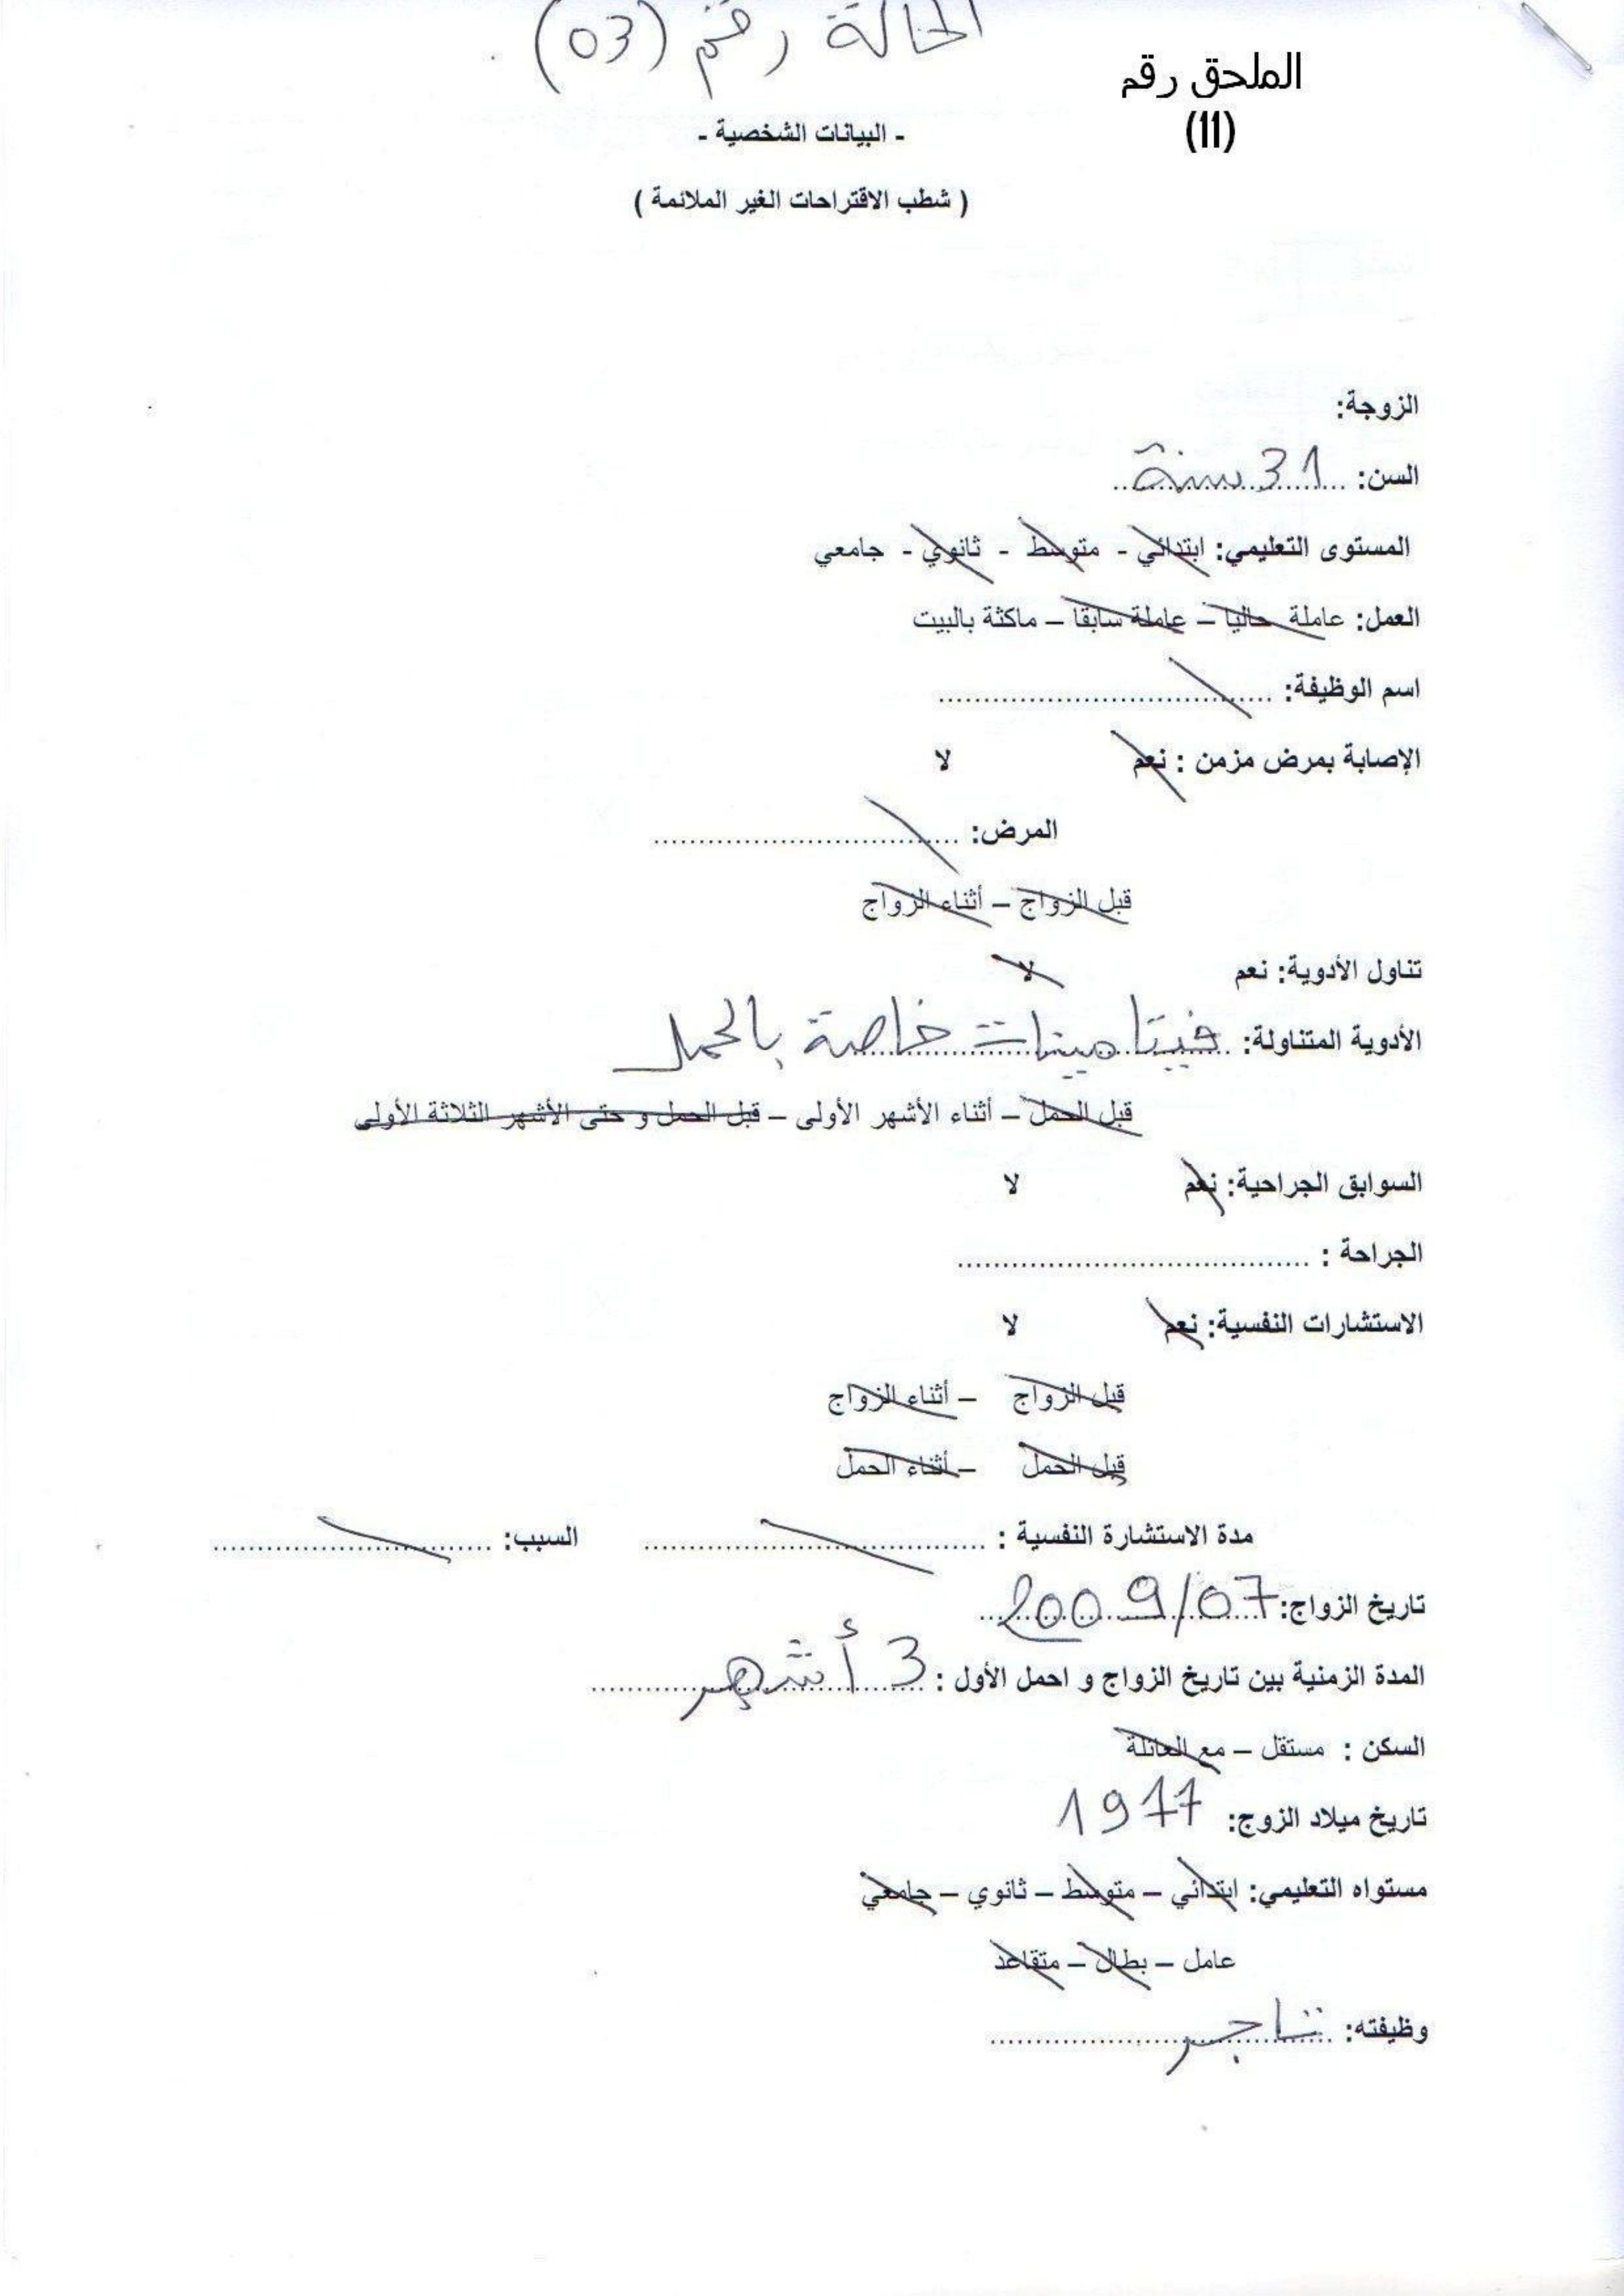 الحالة رقم (03)
الملحق رقم
(11)
- البيانات الشخصية -
( شطب الاقتراحات الغير الملائمة )
الزوجة:
السن: 31 سنة
المستوى التعليمي: ابتدائي - متوسط - ثانوي - جامعي
العمل: عاملة حاليا – عاملة سابقا – ماكثة بالبيت
اسم الوظيفة: ....................................
الإصابة بمرض مزمن : نعم لا
المرض: ..................................
قبل الزواج – أثناء الزواج
تناول الأدوية: نعم لا
الأدوية المتناولة: فيتامينات خاصة بالحمل
قبل الحمل – أثناء الأشهر الأولى – قبل الحمل و حتى الأشهر الثلاثة الأولى
السوابق الجراحية: نعم لا
الجراحة : .......................................
الاستشارات النفسية: نعم لا
قبل الزواج – أثناء الزواج
قبل الحمل – أثناء الحمل
مدة الاستشارة النفسية : ...................................... السبب: ...............................
تاريخ الزواج: 2009/07
المدة الزمنية بين تاريخ الزواج و احمل الأول : 3 أشهر
السكن : مستقل – مع العائلة
تاريخ ميلاد الزوج: 1977
مستواه التعليمي: ابتدائي – متوسط – ثانوي – جامعي
عامل – بطال – متقاعد
وظيفته: تاجر